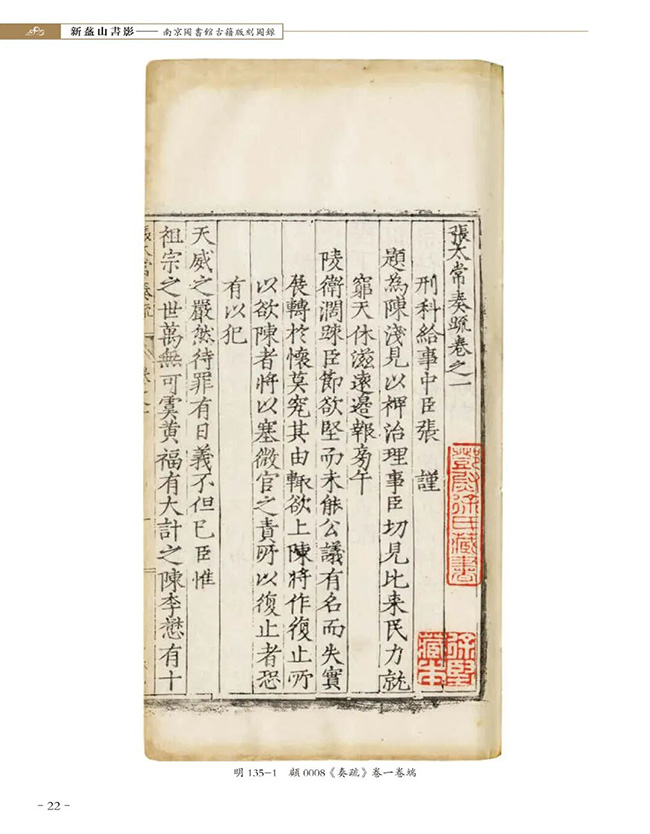 新盋山書影——南京圖書館古籍版刻圖錄
張太常奏疏卷之一
刑科給事中臣張 謹
題為陳淺見以裨治理事臣切見比来民力就
窮天休滋遠邊報旁午
陵衛濶踈臣節欲堅而未能公議有名而失實
展轉於懷莫究其由輙欲上陳將作復止所
以欲陳者將以塞微官之責所以復止者恐
有以犯
天威之嚴然待罪有日義不但已臣惟
祖宗之世萬無可虞黄福有大計之陳李懋有十
張太常奏疏
鄧尉徐氏藏書
徐堅藏本
明 135-1 顧 0008《奏疏》卷一卷端
- 22 -